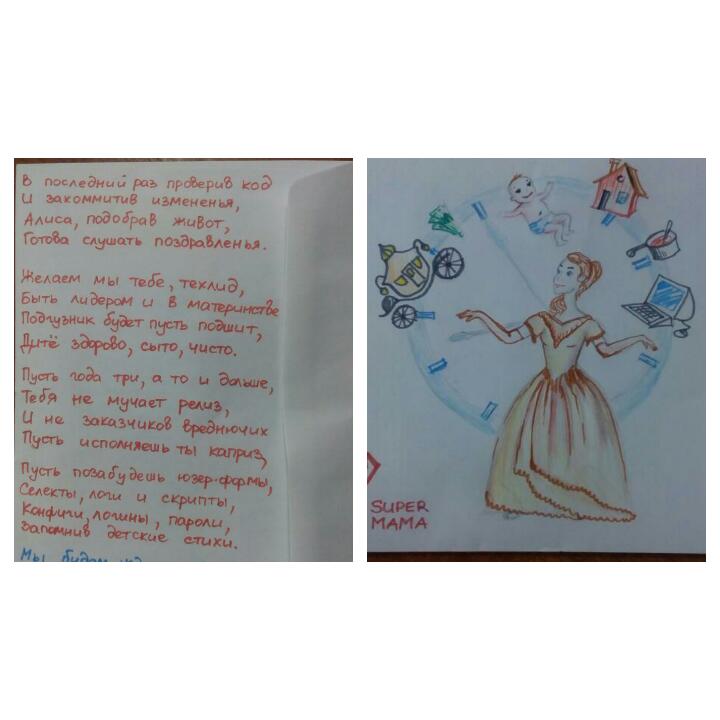 В последний раз проверив код
И закоммитив измененья,
Алиса, подобрав живот,
Готова слушать поздравленья.
Желаем мы тебе, техлид,
Быть лидером и в материнстве
Подгузник будет пусть подшит,
Дитё здорово, сыто, чисто.
Пусть года три, а то и дальше,
Тебя не мучает релиз,
И не заказчиков вреднючих
Пусть исполняешь ты каприз,
Пусть позабудешь юзер-формы,
Селекты, логи и скрипты,
Конфиги, логины, пароли,
Запомнив детские стихи.
Мы будем
SUPER
MAMA